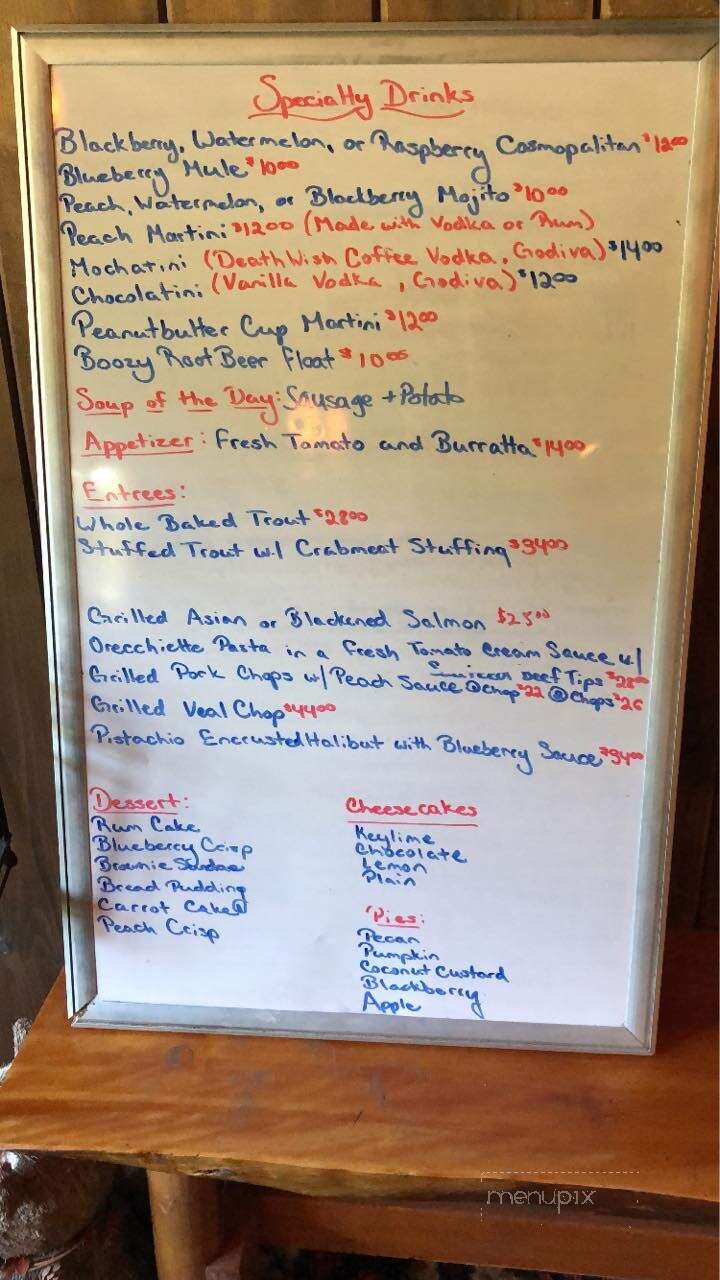 Specialty Drinks
Blackberry, Watermelon, or Raspberry Cosmopolitan $12.00
Blueberry Mule $10.00
Peach, Watermelon, or Blackberry Mojito $10.00
Peach Martini $12.00 (Made with Vodka or Rum)
Mochatini (Death Wish Coffee Vodka, Godiva) $14.00
Chocolatini (Vanilla Vodka, Godiva) $12.00
Peanutbutter Cup Martini $12.00
Boozy Root Beer Float $10.00
Soup of the Day: Sausage + Potato
Appetizer: Fresh Tomato and Burratta $14.00
Entrees:
Whole Baked Trout $28.00
Stuffed Trout w/ Crabmeat Stuffing $34.00
Grilled Asian or Blackened Salmon $25.00
Orecchiette Pasta in a Fresh Tomato Cream Sauce w/
Beef Tips $28.00
Grilled Pork Chops w/ Peach Sauce ① Chop $22 ② Chops $26
Grilled Veal Chop $44.00
Pistachio Encrusted Halibut with Blueberry Sauce $34.00
Dessert:
Rum Cake
Blueberry Crisp
Brownie Sundae
Bread Pudding
Carrot Cake
Peach Crisp
Cheesecakes
Keylime
Chocolate
Lemon
Plain
Pies:
Pecan
Pumpkin
Coconut Custard
Blackberry
Apple
menupix